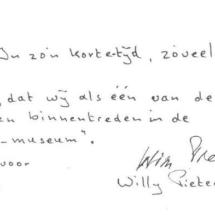 In zo'n korte tijd, zóveel
, dat wij als één van de
en binnentreden in de
-museum".
voor
Wim Pre
Willy Pieter